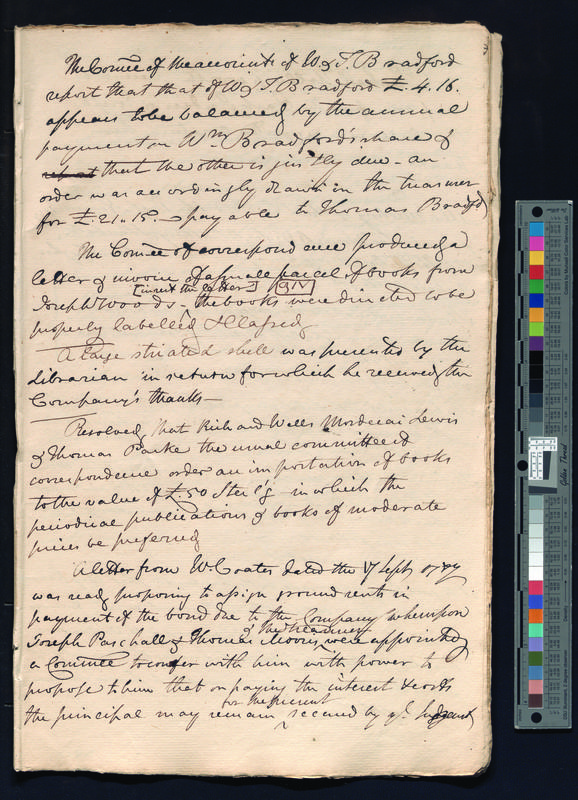 The Comee of the accounts of W & T. Bradford
report that that of W & T. Bradford £. 4.16.
appears to be balanced by the annual
payment on Wm Bradford's share &
report that the other is justly due - an
order was accordingly drawn on the treasurer
for £. 21..15. payable to Thomas Bradfd
The Comee of correspondence produced a
letter & invoice of a small parcel of books from
[insert the letter] [914]
Joseph Woods - the books were directed to be
properly labelled & classed
A large striated shell was presented by the
Librarian in return for which he received the
Company's thanks—
Resolved, that Richard Wells Mordecai Lewis
& Thomas Parke the usual committee of
correspondence order an importation of books
to the value of £.50 Sterlg in which the
periodical publications & books of moderate
prices be preferred
A letter from W. Coates dated the 17 Septr
was read proposing to assign ground rents in
payment of the bond due to the Company whereupon
& the treasurer
Joseph Paschall & Thomas Morris were appointed
a Commee to confer with him with power to
propose to him that on paying the interest & costs
for the present
the principal may remain secured by ye Judgment